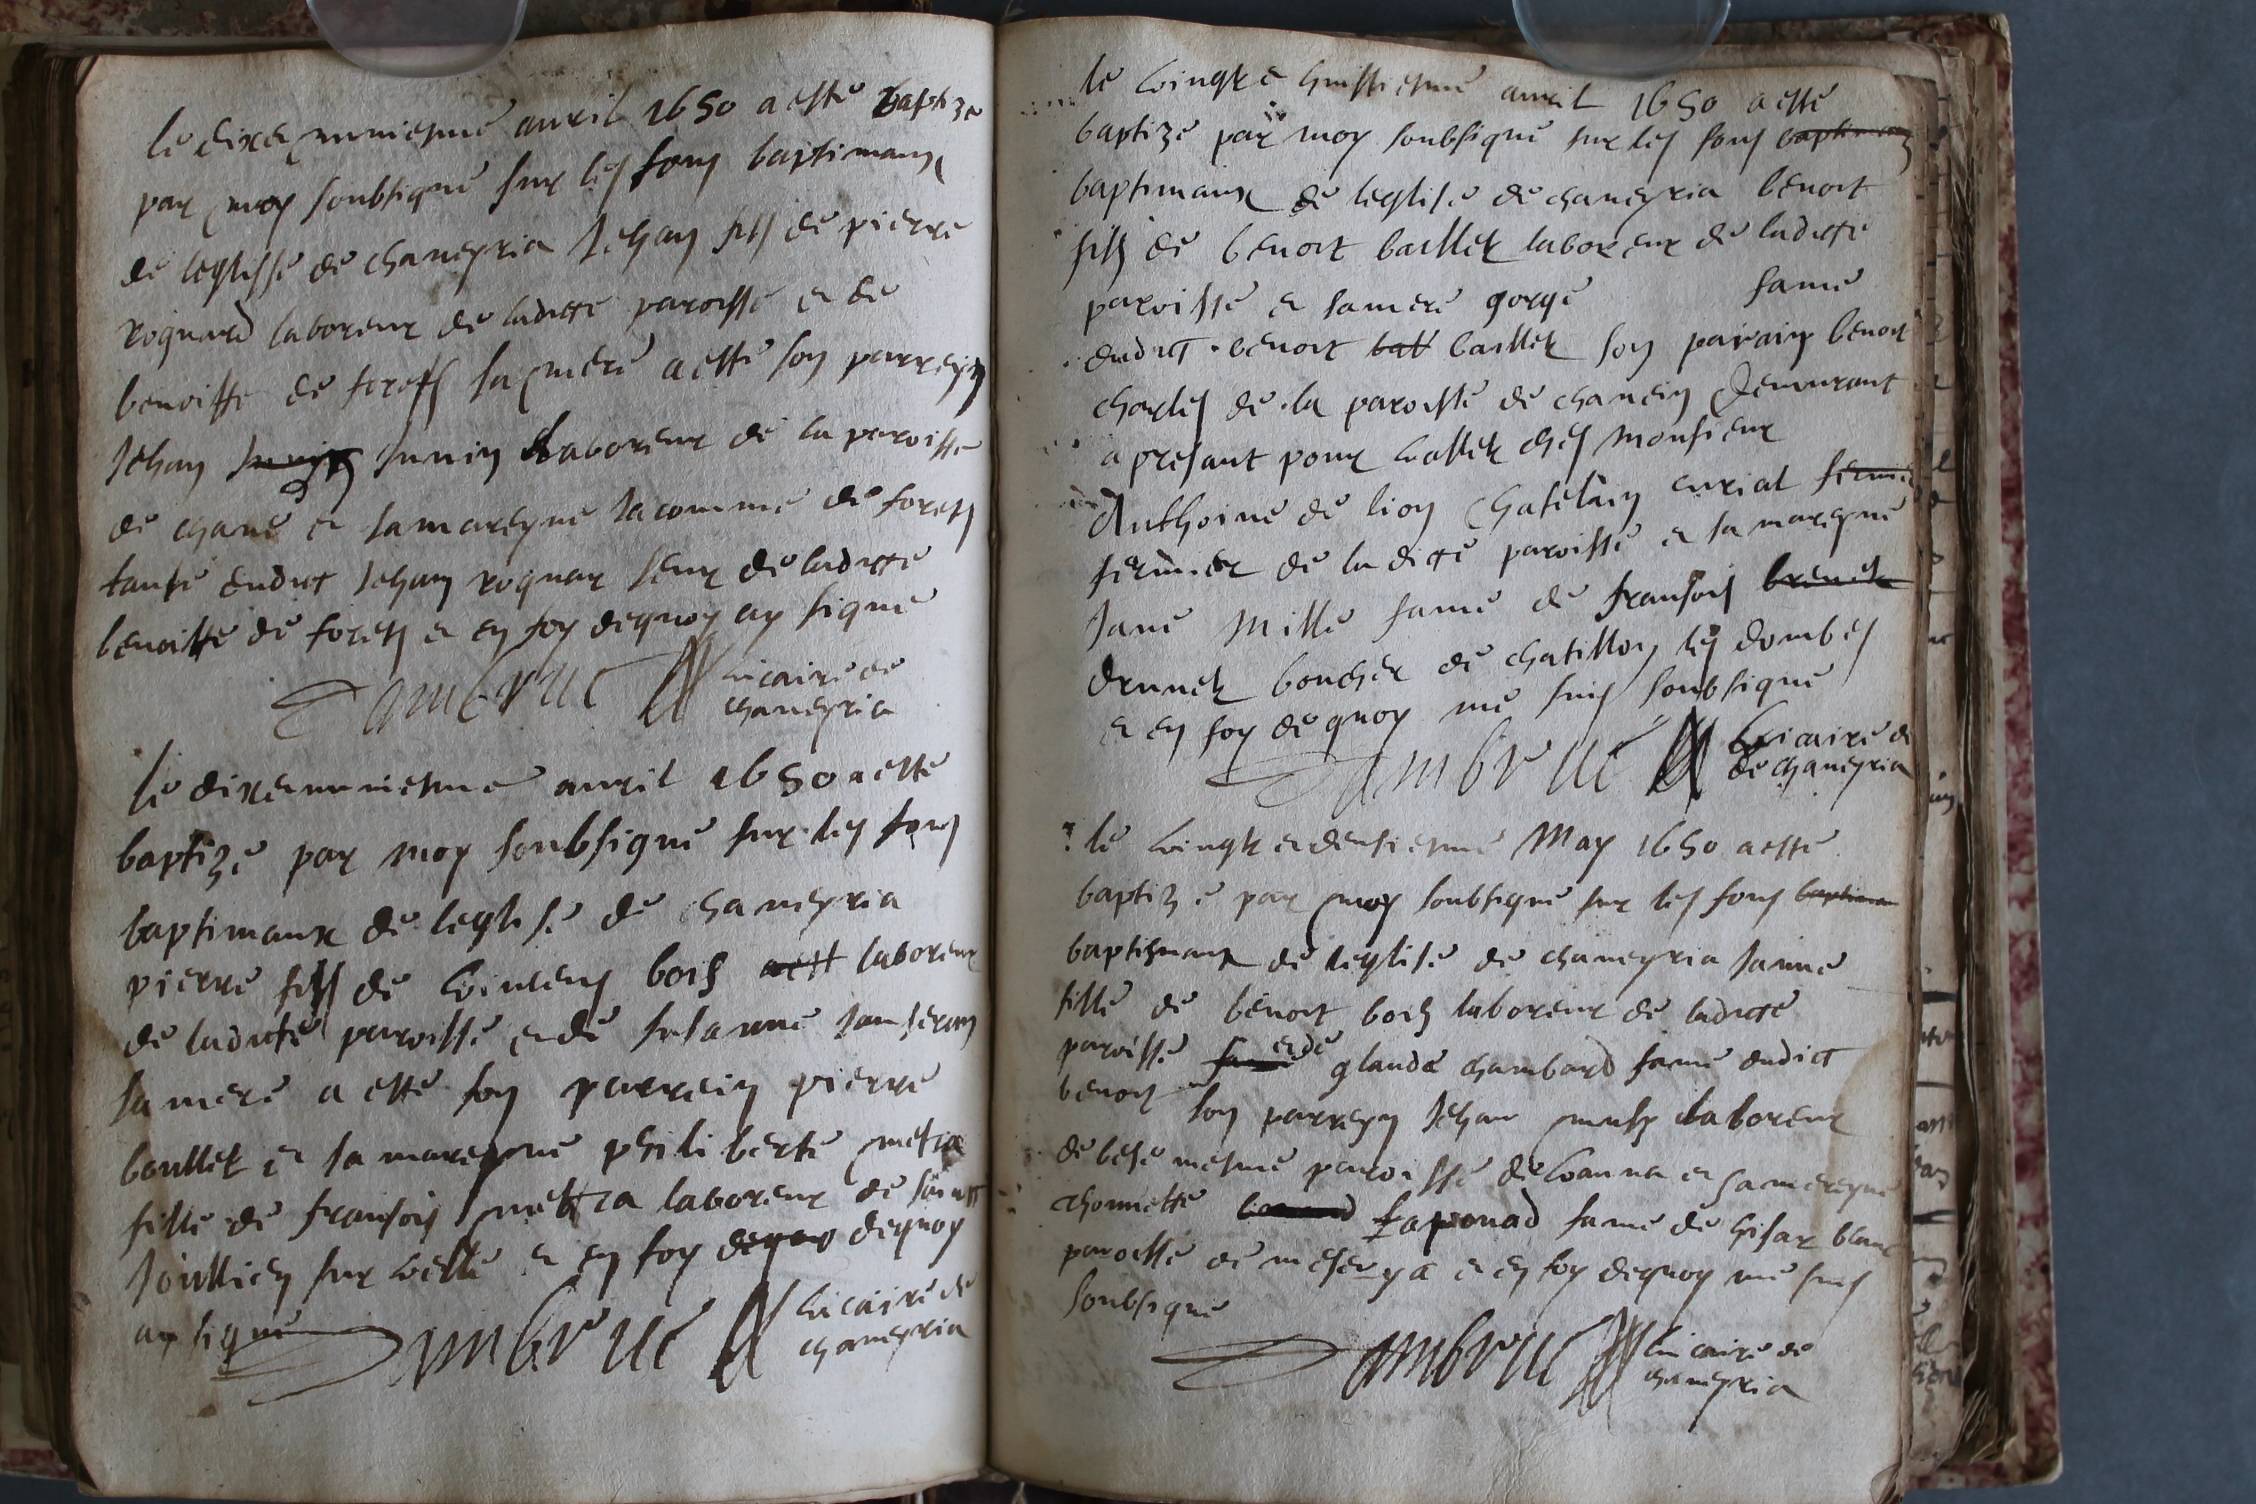 le dixe nuuiesme auril 1650 a esté baptizé
par moy soubsigné sur les fons baptimaux
de leglisse de chaneyria Jehan fils de pierre
roquard laboreur de ladicte paroisse e de
benoiste de forets sa mere a esté son parreyn
Jehan Junin laboreur de la paroisse
de chane e sa mareyne Jacomme de forets
tante dudict Jehan roquar seur de ladicte
benoiste de forets e en foy dequoy ay signé
Dambrue vicaire de
chaneyria
le dixe nuuiesme auril 1650 a esté
baptizé par moy soubsigné sur les fons
baptimaux de leglise de chaneyria
pierre fils de vincens bois laboreur
de ladicte paroisse e de susanne
sa mere a esté son parrein pierre
boullet e sa mareyne philiberte metra
fille de fransois metra laboreur de sainct
Joullien sur velle e en foy dequoy
ay signé Dambrue vicaire de
chaneyria
le vingt e huistiesme auril 1650 a esté
baptizé par moy soubsigné sur les fons baptimaux
baptimaux de leglise de chaneyria benoit
fils de benoit baillet laboreur de ladicte
paroisse e sa mere gorge fame
dudict benoit ball baillet son parain benoit
charles de la paroisse de chanein demurant
a presant pour vallet ches monsieur
Anthoine de lion chatelain curial fermie
fermier de la dicte paroisse e sa mareyne
Jane Mille fame de fransois
drunet boucher de chatillon les dombes
e en foy dequoy me suis soubsigné
Dambrue vicaire de
de chaneyria
le vingt e deusiesme May 1650 a esté
baptizé par moy soubsigné sur les fons baptimau
baptismaux de leglise de chaneyria Janne
fille de benoit bois laboreur de ladicte
paroisse fame e de glaude chambard fame dudict
benoit son parreyn Jehan laboreur
de mesme paroisse de voanna e sa mereyne
thomette faponad fame de blanc
paroisse de meserya e en foy dequoy me suis
soubsigné
Dambrue vicaire de
chaneyria